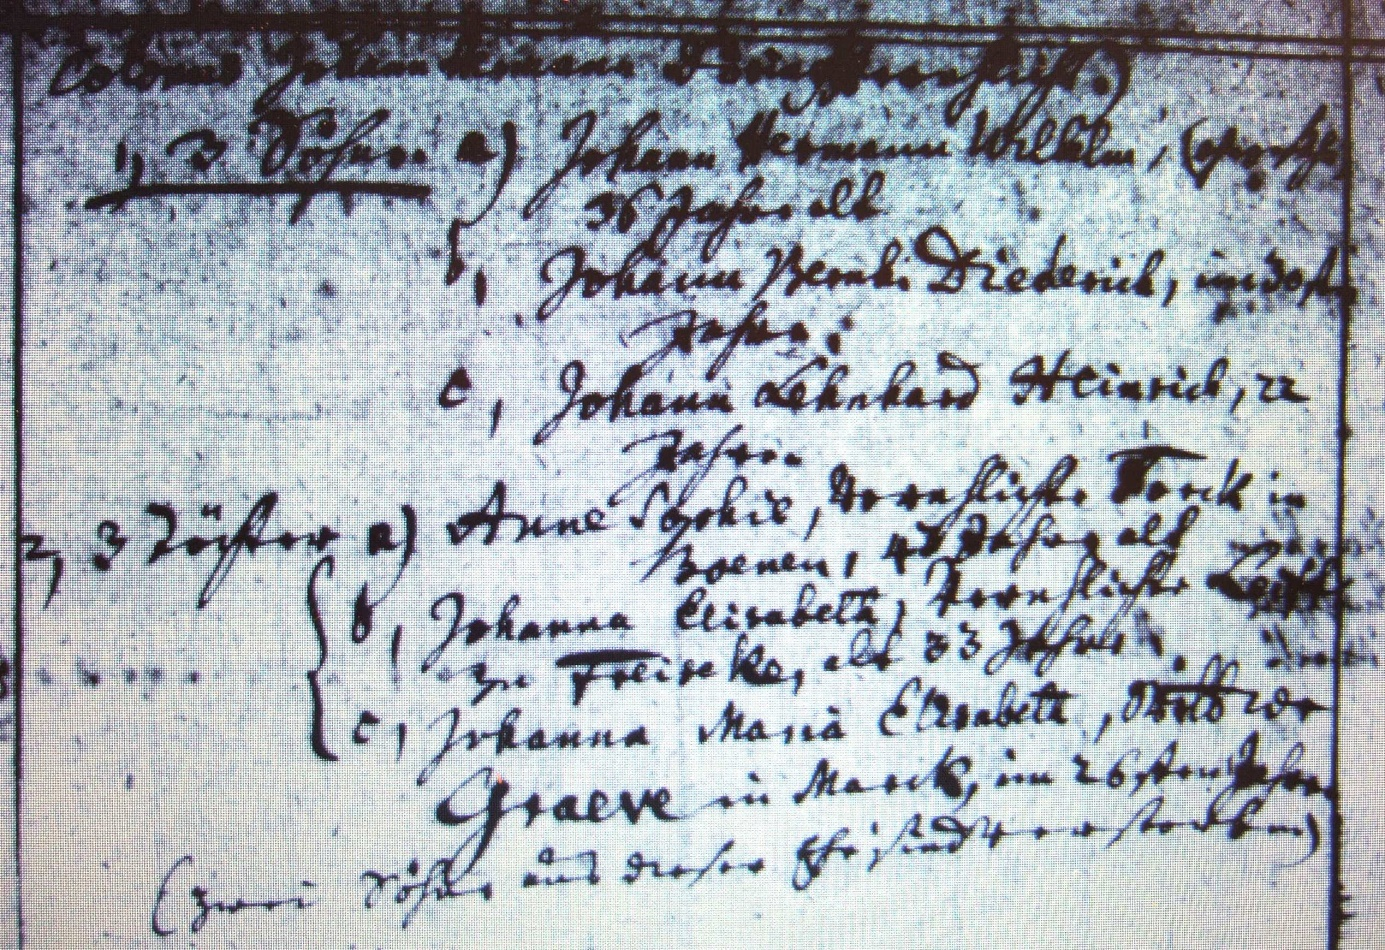 Colonus Johann
1, 3 Söhne. a) Johann Hermann Wilhelm,
36 Jahre alt
b, Johann Bernh. Diederich, im
Jahre.
c, Johann Eberhard Heinrich, 22
Jahre.
2, 3 Töchter a) Anne Sophie, Verehlichte in
Boenen, Jahre alt
b, Johanna Elisabeth, Verehlichte
zu Freiske, alt 33 Jahre
c, Johanna Maria Elisabeth,
Graeve in Marck, im 26sten Jahre
(zwei Söhne aus dieser Ehe sind verstorben)